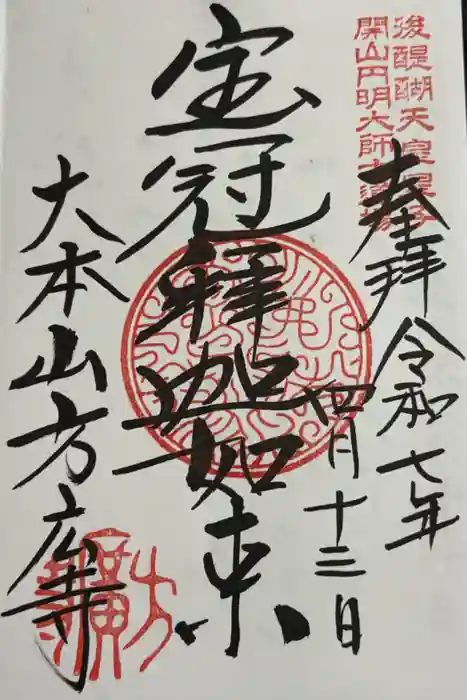 後醍醐天皇皇子
開山円明大師大道場
奉拝 令和七年
四月十三日
宝冠釋迦如来
大本山方広寺